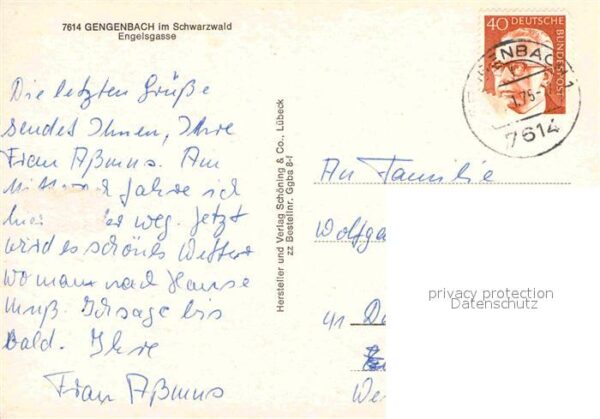 7614 GENGENBACH im Schwarzwald
Engelsgasse
Die letzten Grüße
sendet Ihnen, Ihre
Frau Aßmus. Am
Mittwoch fahre ich
hier weg. Jetzt
wird es schönes Wetter
wo man nach Hause
muß. Ich sage bis
bald. Ihre
Frau Aßmus
Hersteller und Verlag Schöning & Co., Lübeck
zz Bestellnr. Ggba 8-f
40 DEUTSCHE
BUNDESPOST
GENGENBACH 1
.75-
7614
An Familie
Wolfga
41 D
We
privacy protection
Datenschutz